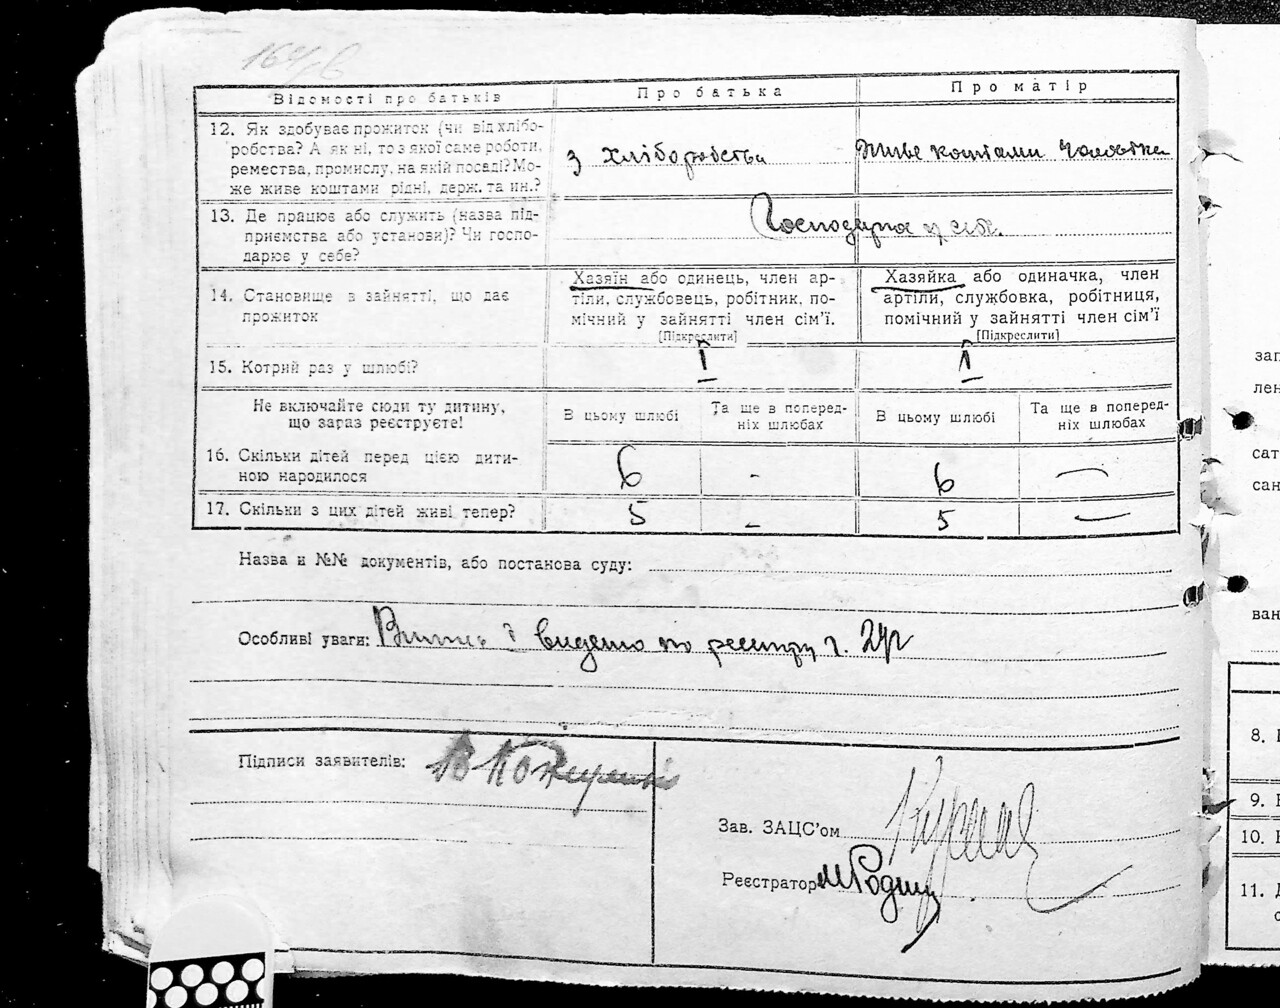 164/в
Відомості про батьків
Про батька
Про матір
12. Як здобуває прожиток (чи від хлібо-
робства? А як ні, то з якої саме роботи,
ремества, промислу, на якій посаді? Мо-
же живе коштами рідні, держ. та ин.?
з хліборобства
живе коштами чоловіка
13. Де працює або служить (назва під-
приємства або установи)? Чи госпо-
дарює у себе?
Господарює у себе.
14. Становище в зайнятті, що дає
прожиток
Хазяїн або одинець, член ар-
тіли, службовець, робітник, по-
мічний у зайнятті член сім’ї.
[Підкреслити]
Хазяйка або одиначка, член
артіли, службовка, робітниця,
помічний у зайнятті член сім’ї
[Підкреслити]
15. Котрий раз у шлюбі?
I
I
Не включайте сюди ту дитину,
що зараз реєструєте!
В цьому шлюбі
Та ще в поперед-
ніх шлюбах
В цьому шлюбі
Та ще в поперед-
ніх шлюбах
16. Скільки дітей перед цією дити-
ною народилося
6
-
6
—
17. Скільки з цих дітей живі тепер?
5
-
5
—
Назва и №№ документів, або постанова суду:
Особливі уваги: видано по реєстру
Підписи заявителів:
Зав. ЗАЦС’ом
Реєстратор
зап
лен
сат
сан
ван
8.
9.
10.
11.